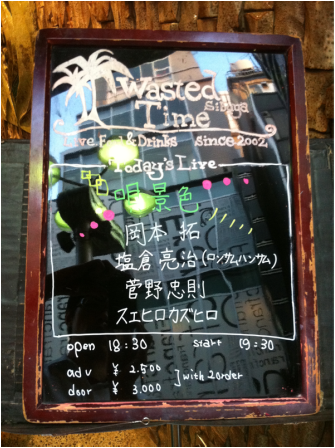 Wasted
Time
Sibuya
Live, Food & Drinks since 2002
Today's Live
唄景色
岡本 拓
塩倉亮治(ロンサム,ハンサム)
菅野忠則
スエヒロカズヒロ
open 18:30 start 19:30
adv ¥2.500
door ¥3.000
with 2order